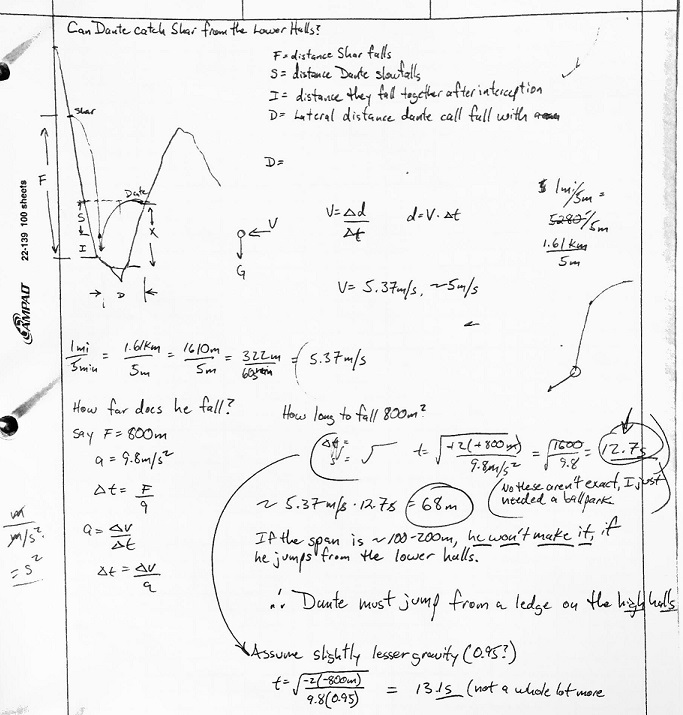 Can Dante catch Shar from the Lower Halls?
F = distance Shar falls
S = distance Dante slowfalls
I = distance they fall together after interception
D = Lateral distance dante call full with
D =
Shar
Dante
F
S
I
X
D
V
G
V = Δd/Δt d = V · Δt
1mi/5m =
5280/5m
1.61km/5m
V = 5.37m/s, ~5m/s
1mi/5min = 1.61km/5m = 1610m/5m = 322m/60s = 5.37m/s
How far does he fall?
say F = 800m
a = 9.8m/s²
Δt = F/a
a = Δv/Δt
Δt = Δv/a
m/m/s².
= s²
How long to fall 800m?
Δt =
t = √(+2(+800m)/9.8m/s²) = √(1600/9.8) = 12.7s
(No these aren't exact, I just
needed a ballpark
~ 5.37m/s · 12.7s = 68m
If the span is ~100-200m, he won't make it, if
he jumps from the lower halls.
∴ Dante must jump from a ledge on the high halls
Assume slightly lesser gravity (0.95?)
t = √(-2(-800m)/9.8(0.95)) = 13.1s (not a whole lot more
AMPAD 22-139 100 sheets